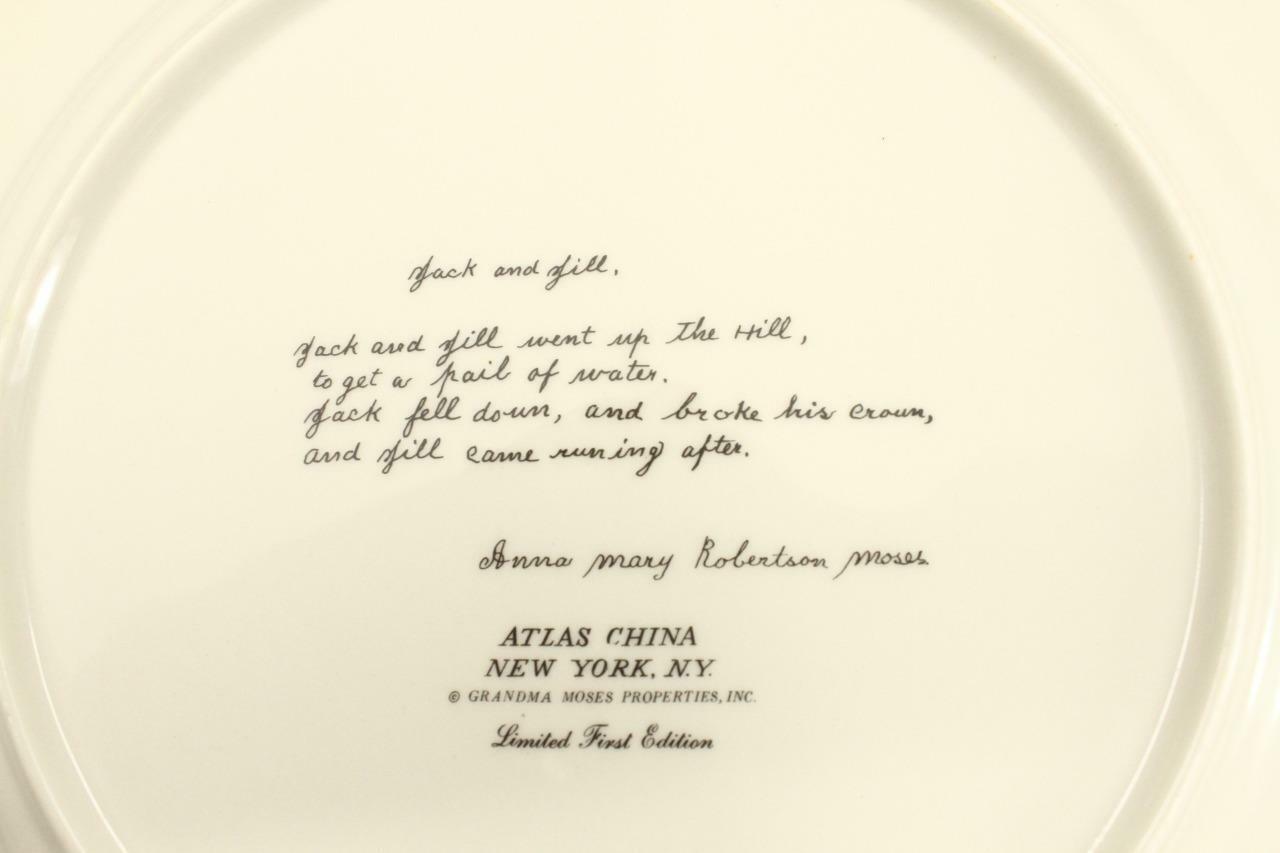 Jack and Jill.
Jack and Jill went up The Hill,
to get a pail of water.
Jack fell down, and broke his crown,
and Jill came runing after.
Anna mary Robertson moses.
ATLAS CHINA
NEW YORK, N.Y.
© GRANDMA MOSES PROPERTIES, INC.
Limited First Edition